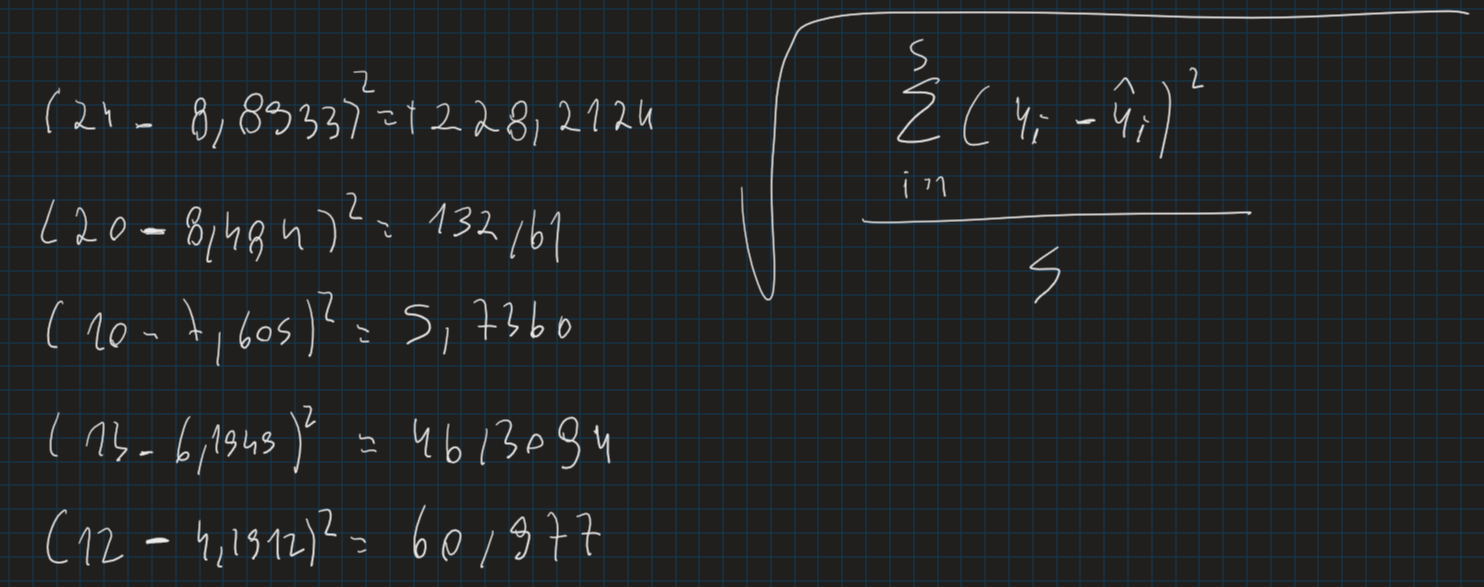 (24 - 8,8933)² = + 228,2124
(20 - 8,484)² = 132,61
(10 - 7,605)² = 5,7360
(13 - 6,1949)² = 46,3094
(12 - 4,1912)² = 60,977
√
5
∑ (yᵢ - ŷᵢ)²
i=1
5